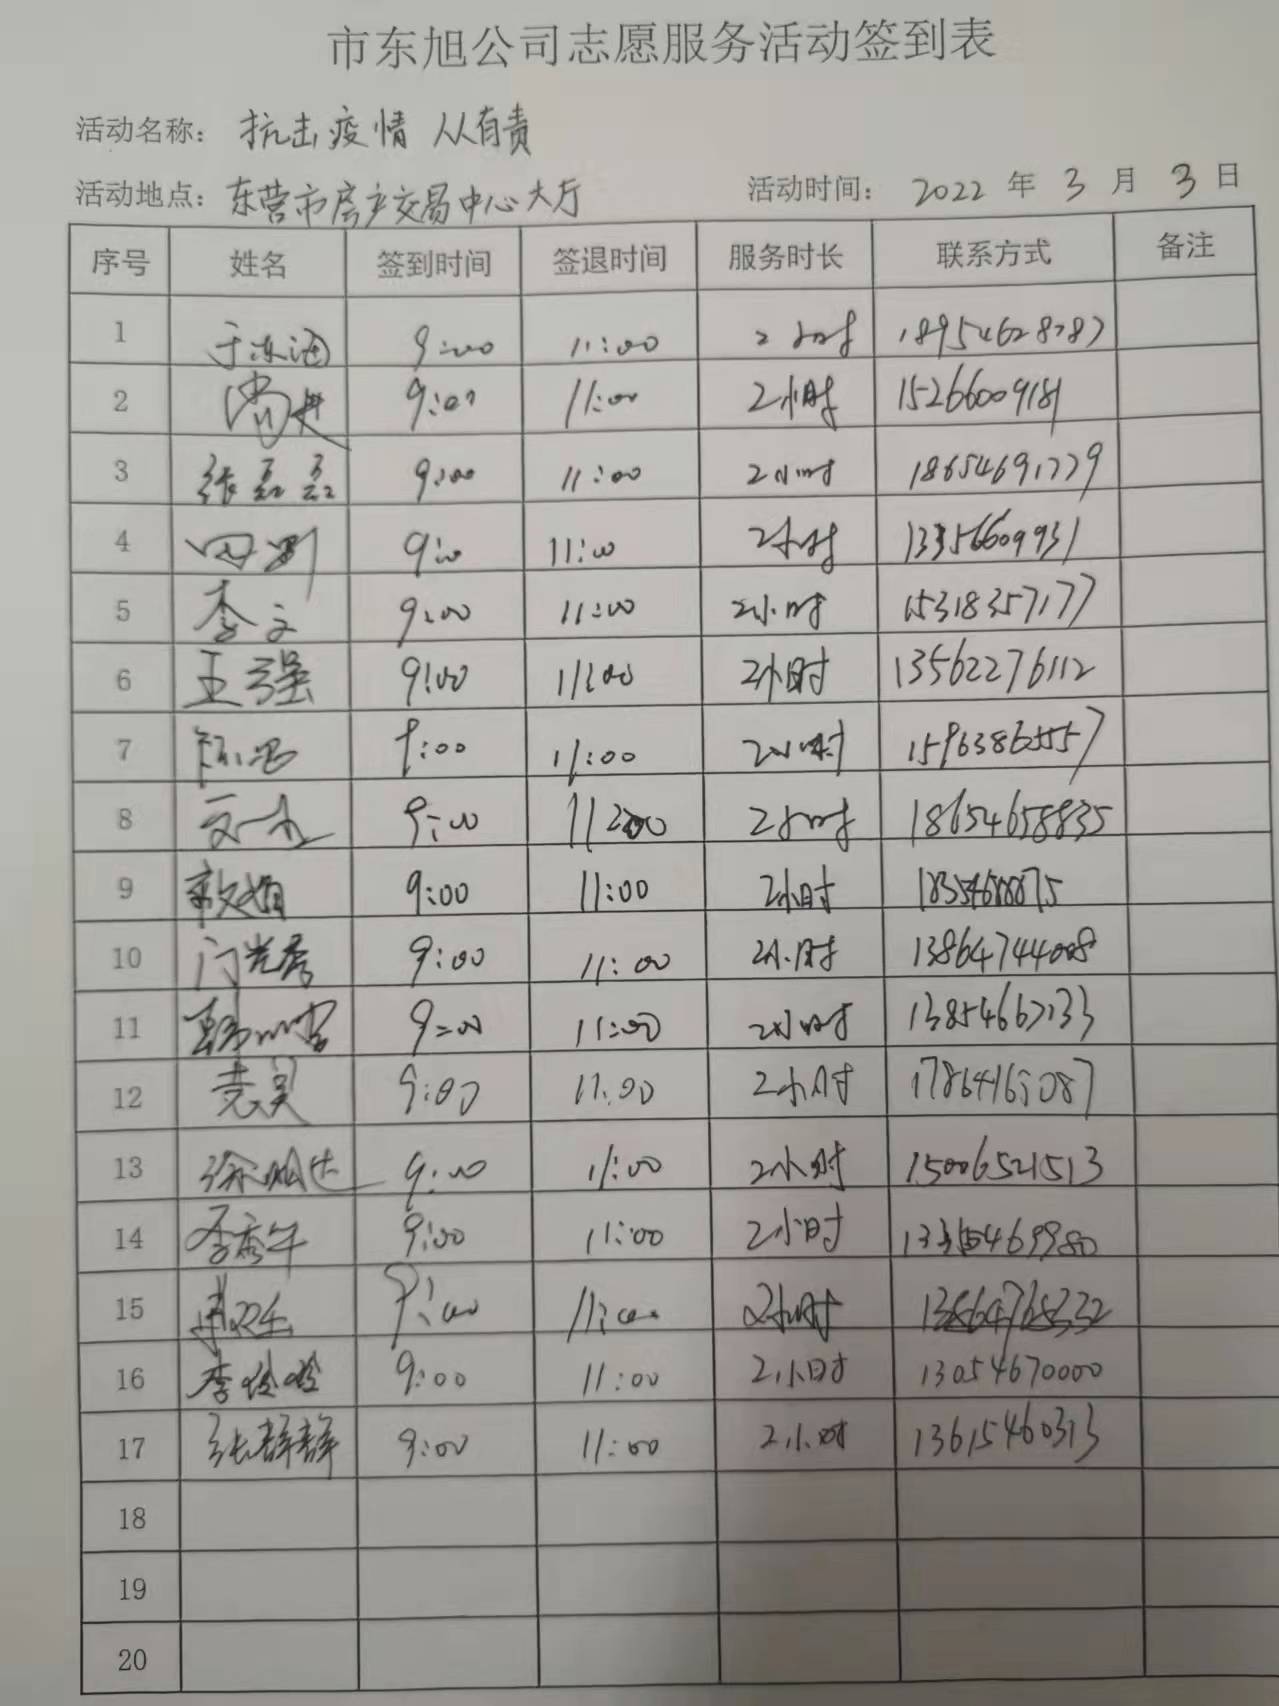 市东旭公司志愿服务活动签到表
活动名称: 抗击疫情 人人有责
活动地点: 东营市房产交易中心大厅 活动时间: 2022 年 3 月 3 日
序号 姓名 签到时间 签退时间 服务时长 联系方式 备注
1 9:00 11:00 2小时
2 9:00 11:00 2小时 15266009181
3 张磊磊 9:00 11:00 2小时 18654691779
4 9:00 11:00 2小时 13356609931
5 李文 9:00 11:00 2小时 15318357177
6 王强 9:00 11:00 2小时 13562276112
7 9:00 11:00 2小时 15963865557
8 9:00 11:00 2小时 18654658835
9 9:00 11:00 2小时
10 门光秀 9:00 11:00 2小时 13864744008
11 9:00 11:00 2小时
12 袁昊 9:00 11:00 2小时 17864165087
13 9:00 11:00 2小时 15006521513
14 李秀午 9:00 11:00 2小时
15 9:00 11:00 2小时
16 李玲玲 9:00 11:00 2小时 13054670000
17 张群群 9:00 11:00 2小时 13615460313
18
19
20